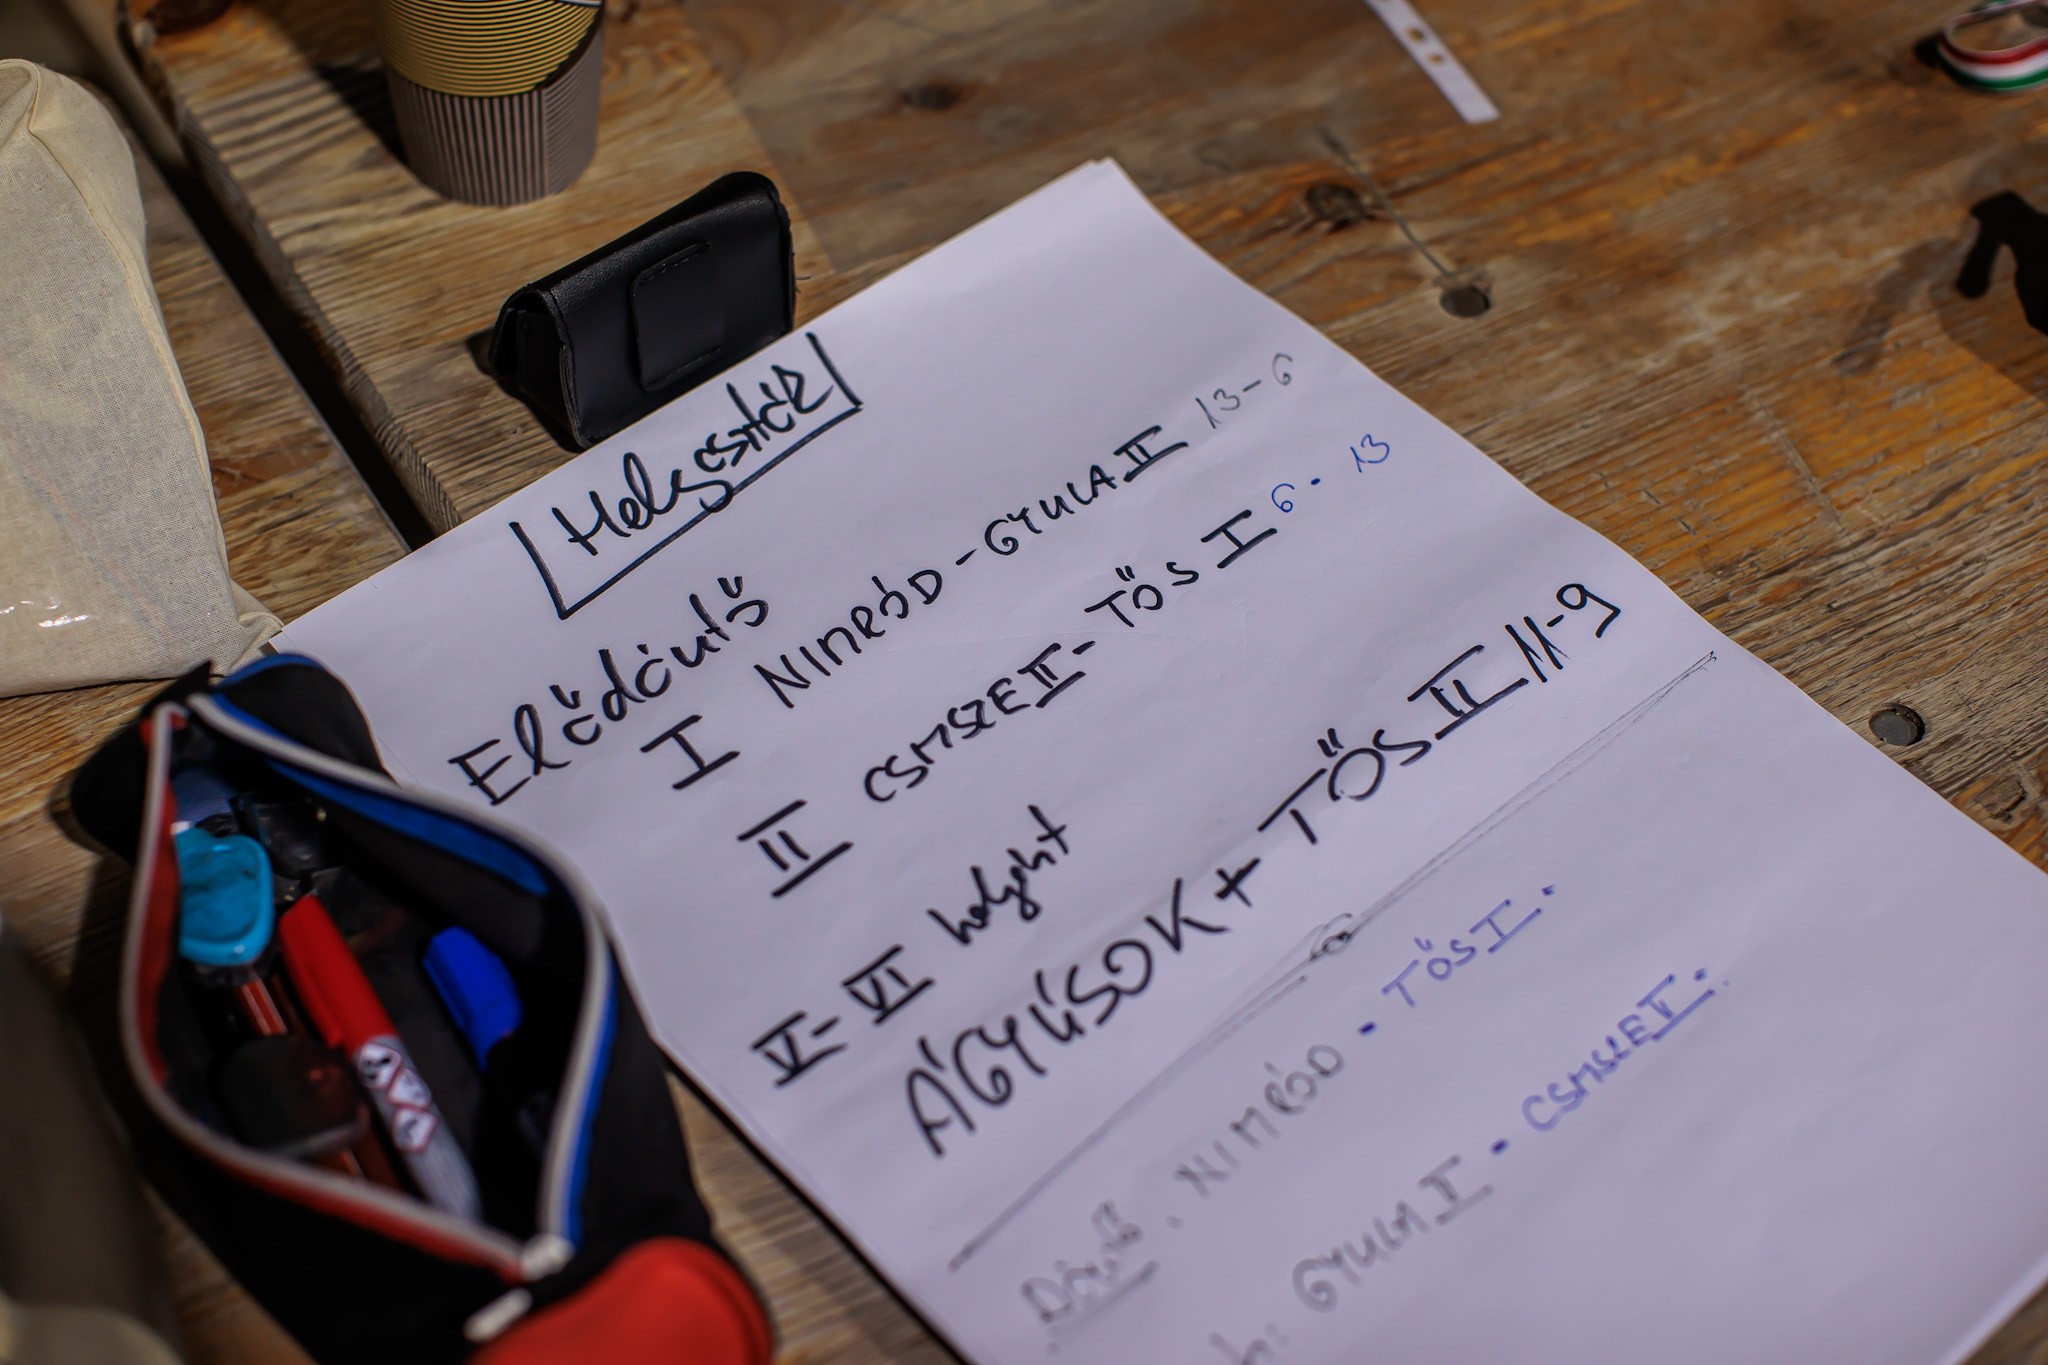 Helyosztók
Elődöntő
I NIMRÓD - GYULA II 13-6
II CSMSZE II - TŐS I 6-13
V-VI helyért
ÁGYÚSOK + TŐS II 11-9
Döntő: NIMRÓD - TŐS I.
GYULA II - CSMSZE II.